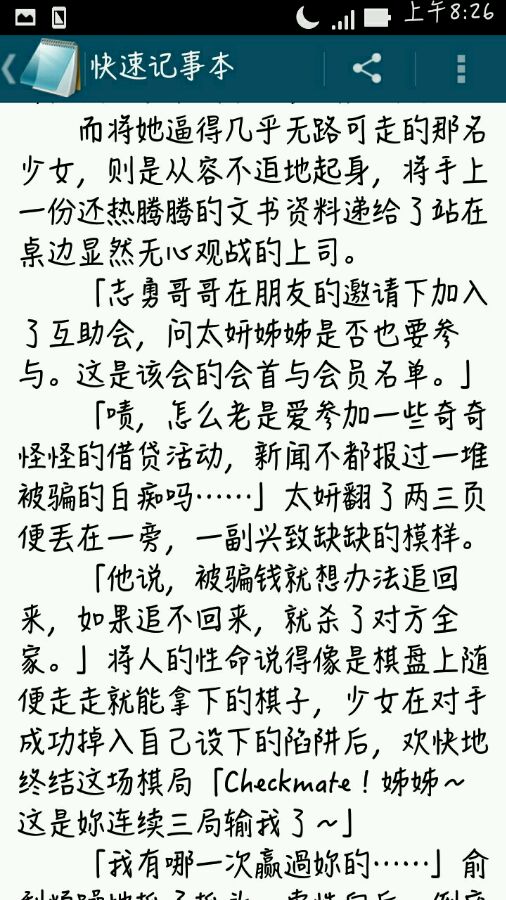 上午8:26
快速记事本
而将她逼得几乎无路可走的那名
少女，则是从容不迫地起身，将手上
一份还热腾腾的文书资料递给了站在
桌边显然无心观战的上司。
「志勇哥哥在朋友的邀请下加入
了互助会，问太妍姊姊是否也要参
与。这是该会的会首与会员名单。」
「啧，怎么老是爱参加一些奇奇
怪怪的借贷活动，新闻不都报过一堆
被骗的白痴吗……」太妍翻了两三页
便丢在一旁，一副兴致缺缺的模样。
「他说，被骗钱就想办法追回
来，如果追不回来，就杀了对方全
家。」将人的性命说得像是棋盘上随
便走走就能拿下的棋子，少女在对手
成功掉入自己设下的陷阱后，欢快地
终结这场棋局「Checkmate！姊姊~
这是妳连续三局输我了~」
「我有哪一次赢過妳的……」俞